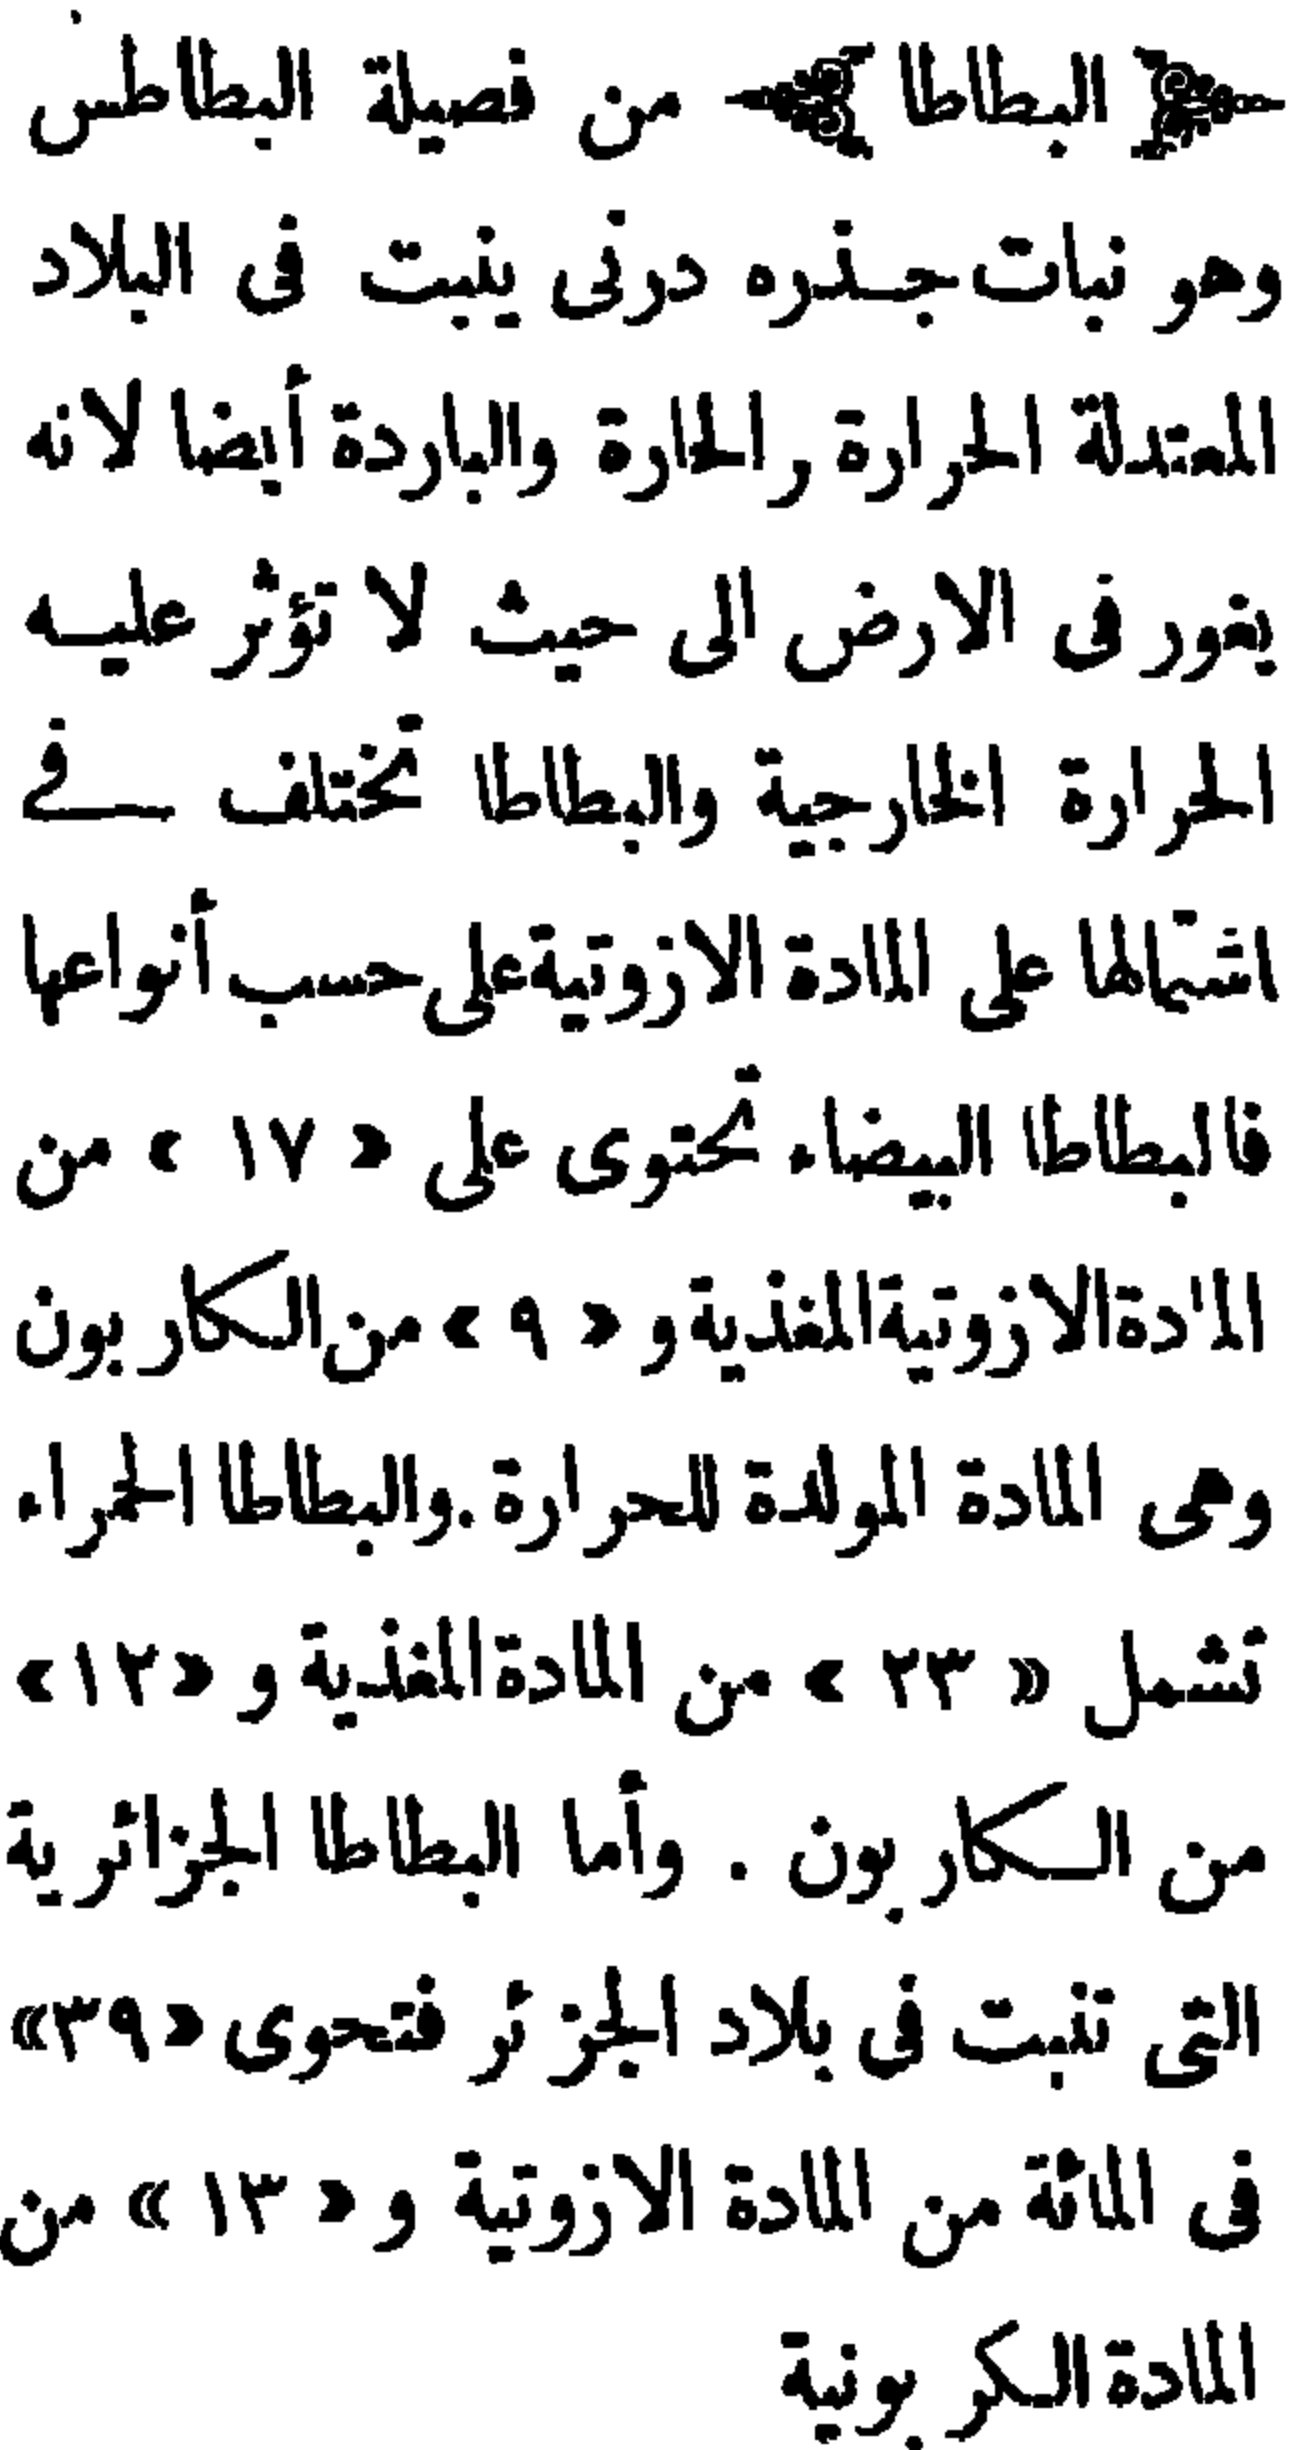 البطاطا من فصيلة البطاطس
وهو نبات جذره درنى ينبت فى البلاد
المعتدلة الحرارة والحارة والباردة أيضا لانه
يغور فى الارض الى حيث لا تؤثر عليه
الحرارة الخارجية والبطاطا تختلف في
اشتمالها على المادة الازوتية على حسب أنواعها
فالبطاطا البيضاء تحتوى على « ١٧ » من
المادة الازوتية المغذية و « ٩ » من الكاربون
وهى المادة المولدة للحرارة . والبطاطا الحمراء
تشمل « ٢٣ » من المادة المغذية و «١٢»
من الكاربون . وأما البطاطا الجزائرية
التى تنبت فى بلاد الجزئر فتحوى «٣٩»
فى المائة من المادة الازوتية و « ١٣ » من
المادة الكربونية